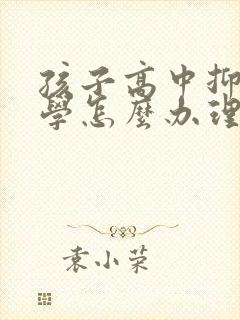 孩子高中抑
學怎麼办理
袁小荣